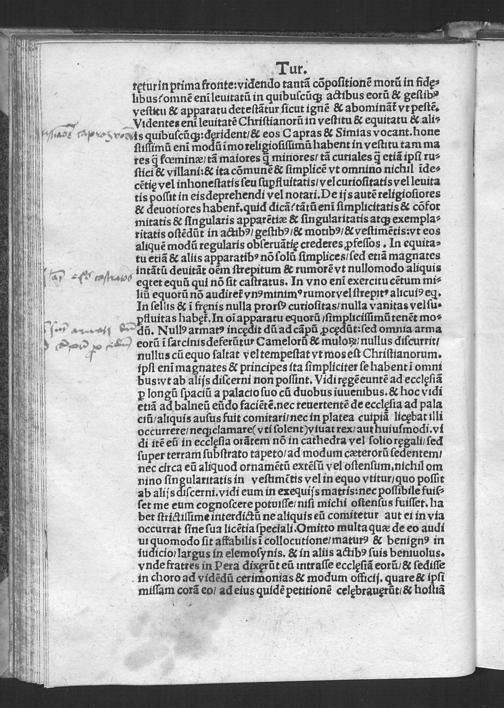 Tur.
ret̃ur in prima fronte: videndo tantã cõpositionẽ morũ in fide-
libus/ omnẽ enĩ leuitatũ in quibuscũq; actibus eorũ & gestibꝰ
vestitu & apparatu detestãtur sicut ignẽ & abominãt vt pestẽ.
Videntes enĩ leuitatẽ Christianorũ in vestitu & equitatu & ali-
is quibuscũq; derident/ & eos Capras & Simias vocant. hone
stissimũ enĩ modũ imo religiosissimũ habent in vestitu tam ma
res q̃ fœminæ/ tã maiores q̃ minores/ tã curiales q̃ etiã ipsi ru-
stici & villani: & ita comunẽ & simplicẽ vt omnino nichil ide-
cẽtię vel inhonestatis seu supfluitatis/ vel curiositatis vel leuita
tis possit in eis deprehendi vel notari. De ijs autẽ religiosiores
& deuotiores habent̃. quid dicã? tãtũ enĩ simplicitatis & cõfor
mitatis & singularis apparẽtiæ & singularitatis atq; exempla-
ritatis ostẽdũt in actibꝰ/ gestibꝰ/ & motibꝰ/ & vestimẽtis: vt eos
aliquẽ modũ regularis obseruãtię crederes pfessos. In equita-
tu etiã & aliis apparatibꝰ nõ solũ simplices/ sed etiã magnates
intãtũ deuitãt oẽm strepitum & rumorẽ vt nullomodo aliquis
eqtet equũ qui nõ sit castratus. In vno enĩ exercitu cẽtum mi-
liũ equorũ nõ audiret̃ vnꝰ minimꝰ rumor vel strepitꝰ alicuiꝰ eq.
In sellis & ĩ frenis nulla prorsꝰ curiositas/ nulla vanitas vel su-
pfluitas habet̃. In oĩ apparatu equorũ/ simplicissimũ tenẽt mo-
dũ. Nullꝰ armatꝰ incedit dũ ad cãpũ pcedũt: sed omnia arma
eorũ ĩ sarcinis deferũtur Camelorũ & muloꝝ/ nullus discurrit/
nullus cũ equo saltat vel tempestat vt mos est Christianorum.
ipsi enĩ magnates & principes ita simpliciter se habent ĩ omni
bus: vt ab alijs discerni non possint. Vidi regẽ euntẽ ad ecclesiã
p longũ spaciũ a palacio suo cũ duobus iuuenibus. & hoc vidi
etiã ad balneũ eũdo facẽtẽ. nec reuertentẽ de ecclesia ad pala
ciũ/ aliquis ausus fuit comitari/ nec in platea cuipiã licebat illi
occurrere/ neq; clamare (vti solent) viuat rex/ aut huiusmodi. vi
di itẽ eũ in ecclesia orãtem nõ in cathedra vel solio regali/ sed
super terram substrato tapeto/ ad modum cæterorũ sedentem/
nec circa eũ aliquod ornamẽtũ extẽsũ vel ostensum, nichil om
nino singularitatis in vestimẽtis vel in equo vtitur/ quo possit
ab alijs discerni. vidi eum in exequijs matris: nec possibile fuis-
set me eum cognoscere potuisse/ nisi michi ostensus fuisset. ha
bet strictissime interdictũ ne aliquis eũ comitetur aut ei in via
occurrat sine sua licẽtia speciali. Omitto multa quæ de eo audi
vi quomodo sit affabilis ĩ collocutione/ maturꝰ & benignꝰ in
iudicio/ largus in elemosynis. & in aliis actibꝰ suis beniuolus.
vnde fratres in Pera dixerũt eũ intrasse ecclesiã eorũ/ & sedisse
in choro ad vidẽdũ cerimonias & modum officij. quare & ipsi
missam corã eo/ ad eius quidẽ petitionẽ celebrauerũt/ & hostiã